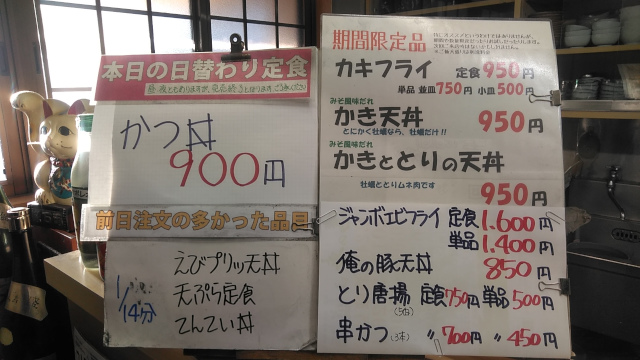 本日の日替わり定食
かつ丼
900円
前日注文の多かった品目
1/14分
えびプリッ天丼
天ぷら定食
てんてい丼
期間限定品
カキフライ 定食950円
単品 並皿750円 小皿500円
みそ風味だれ
かき天丼 950円
とにかく牡蠣なら、牡蠣だけ!!
みそ風味だれ
かきととりの天丼
牡蠣ととりムネ肉です
950円
ジャンボエビフライ 定食1.600円
単品1.400円
俺の豚天丼 850円
とり唐揚 定食750円 単品500円
(5ヶ)
串かつ(3本) 〃700円 〃450円